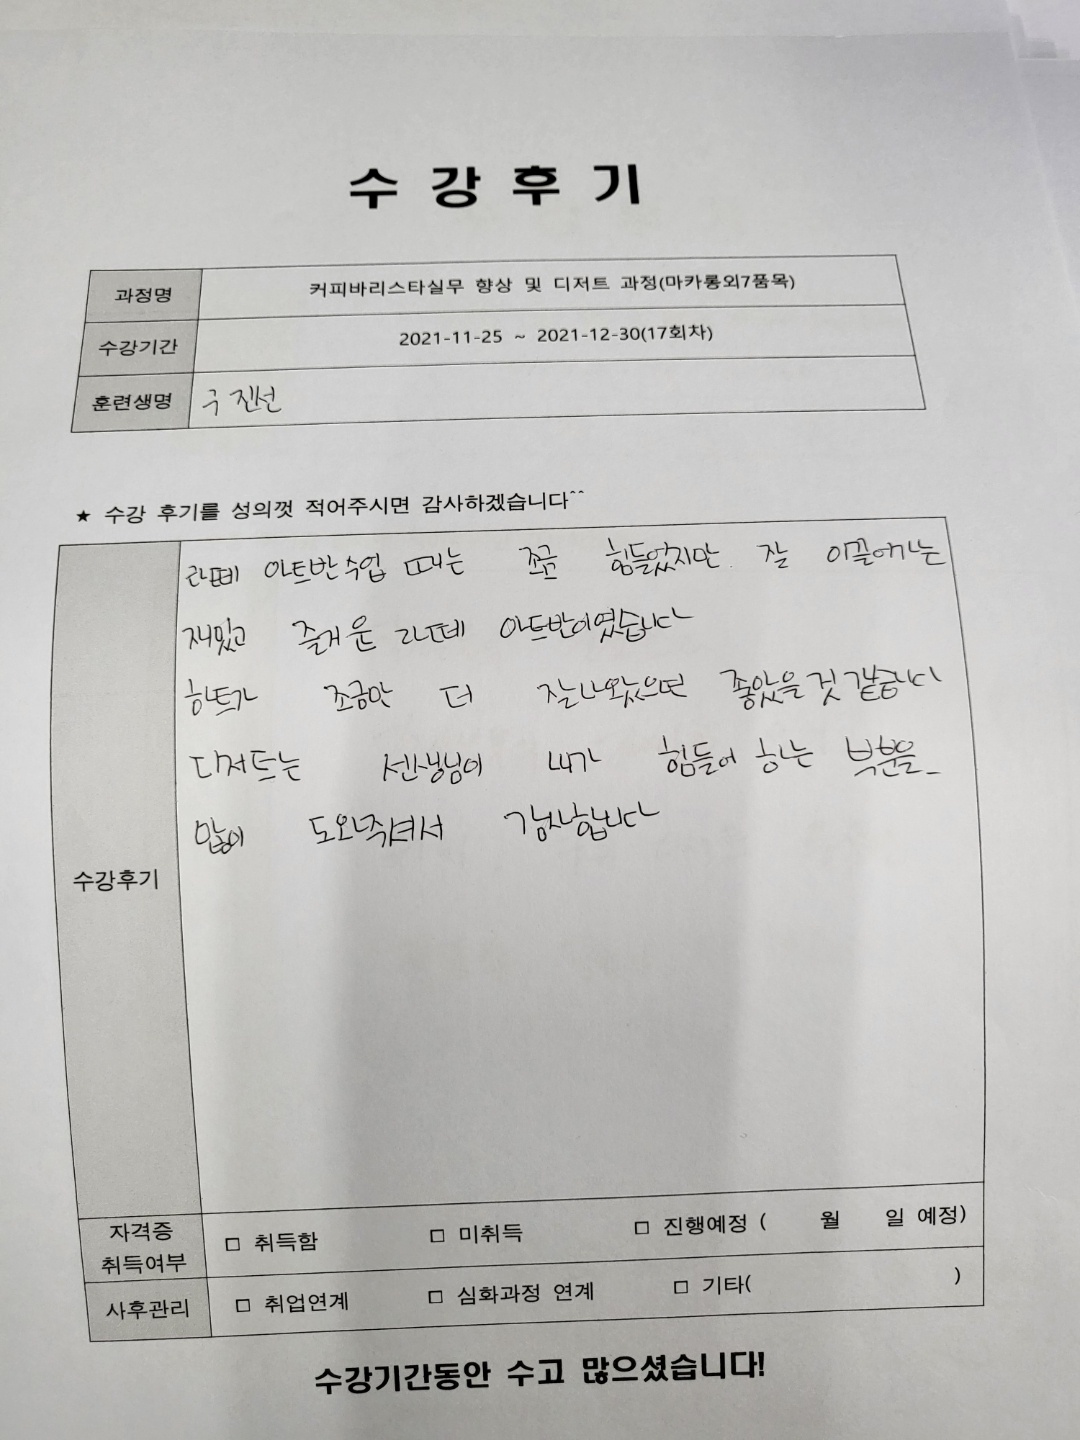 수 강 후 기
과정명 커피바리스타실무 향상 및 디저트 과정(마카롱외7품목)
수강기간 2021-11-25 ~ 2021-12-30(17회차)
훈련생명 구진선
★ 수강 후기를 성의껏 적어주시면 감사하겠습니다^^
라떼 아트반 수업 때는 조금 힘들었지만 잘 이끌어가는
재밌고 즐거운 라떼 아트반이였습니다
하트가 조금만 더 잘나왔으면 좋았을것 같습니다
디저트는 센생님이 내가 힘들어 하는 부분을
많이 도와주셔서 감사합니다
수강후기
자격증
취득여부 □ 취득함 □ 미취득 □ 진행예정 ( 월 일 예정)
사후관리 □ 취업연계 □ 심화과정 연계 □ 기타( )
수강기간동안 수고 많으셨습니다!